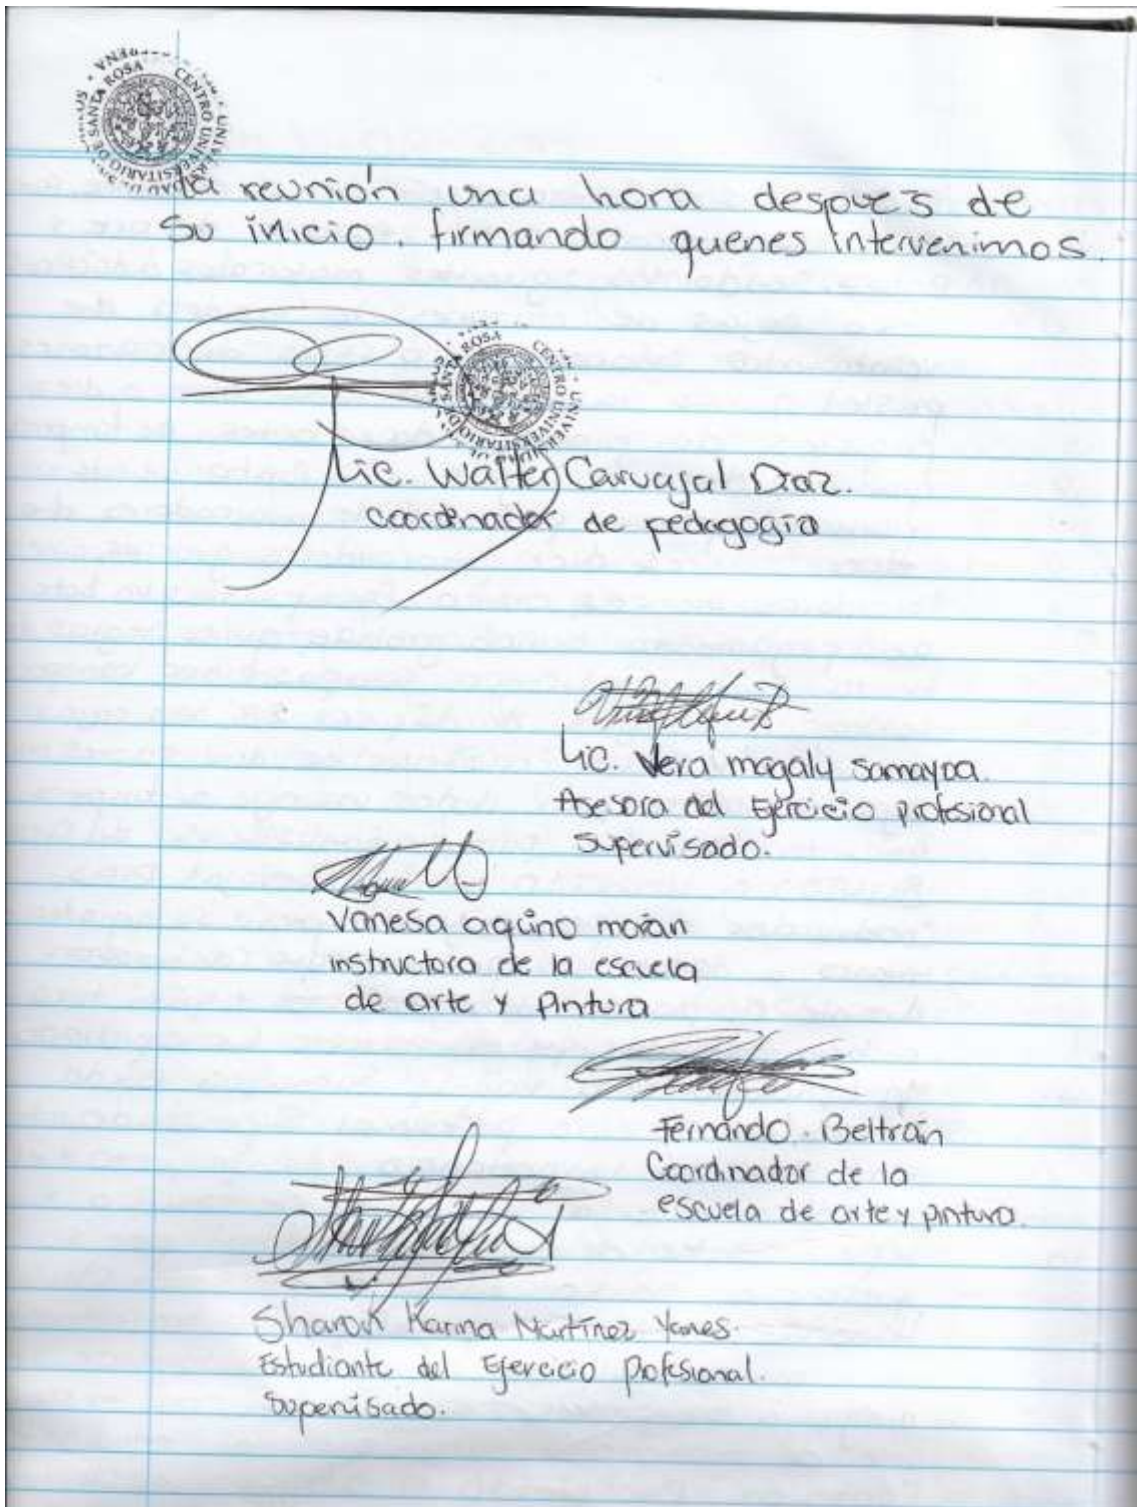 CENTRO UNIVERSITARIO DE SANTA ROSA
la reunión una hora despues de
su inicio. firmando quenes intervenimos.
CENTRO UNIVERSITARIO DE SANTA ROSA
Lic. Walter Carvajal Diaz.
coordinador de pedagogía
Lic. Vera magaly samayoa.
Asesora del Ejercicio profesional
supervisado.
Vanesa aquino morán
instructora de la escuela
de arte y pintura
Fernando. Beltrán
Coordinador de la
escuela de arte y pintura.
Sharon Karina Martínez Yanes.
Estudiante del Ejercicio profesional.
Supervisado.